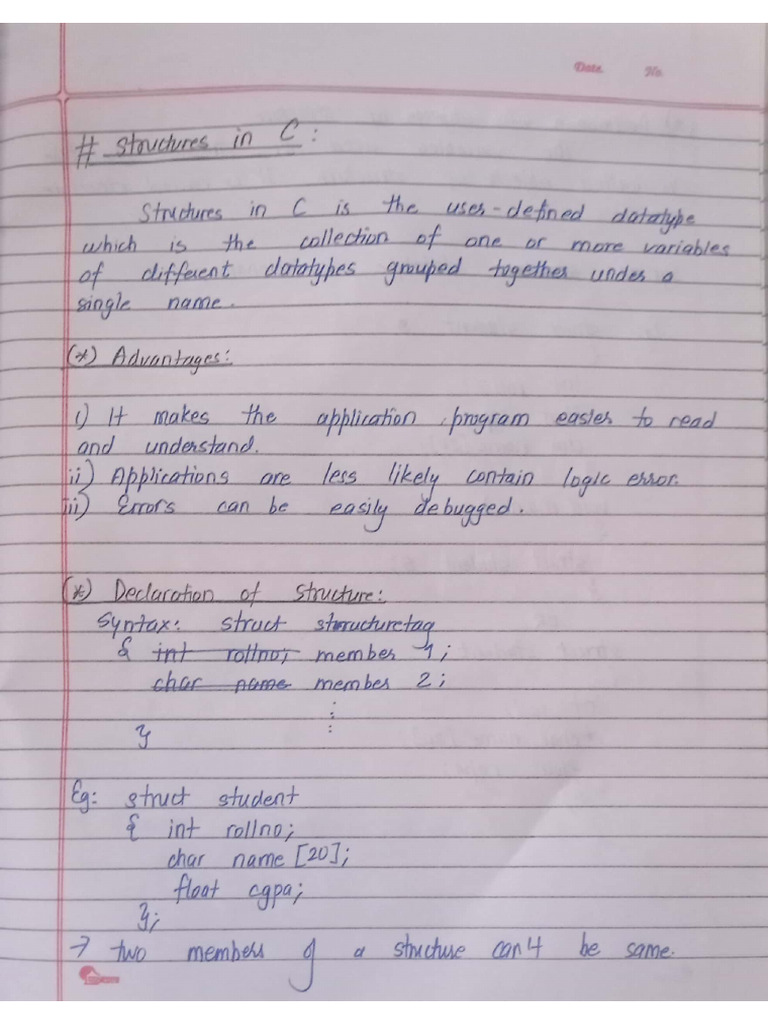 Date. No.
# Structures in C :
Structures in C is the user-defined datatype
which is the collection of one or more variables
of different datatypes grouped together under a
single name.
(*) Advantages:
i) It makes the application program easier to read
and understand.
ii) Applications are less likely contain logic error.
iii) Errors can be easily debugged.
(*) Declaration of structure:
Syntax: struct structuretag
{ int rollno; member 1;
char name member 2;
⋮
}
Eg: struct student
{ int rollno;
char name [20];
float cgpa;
};
→ two members of a structure can't be same.